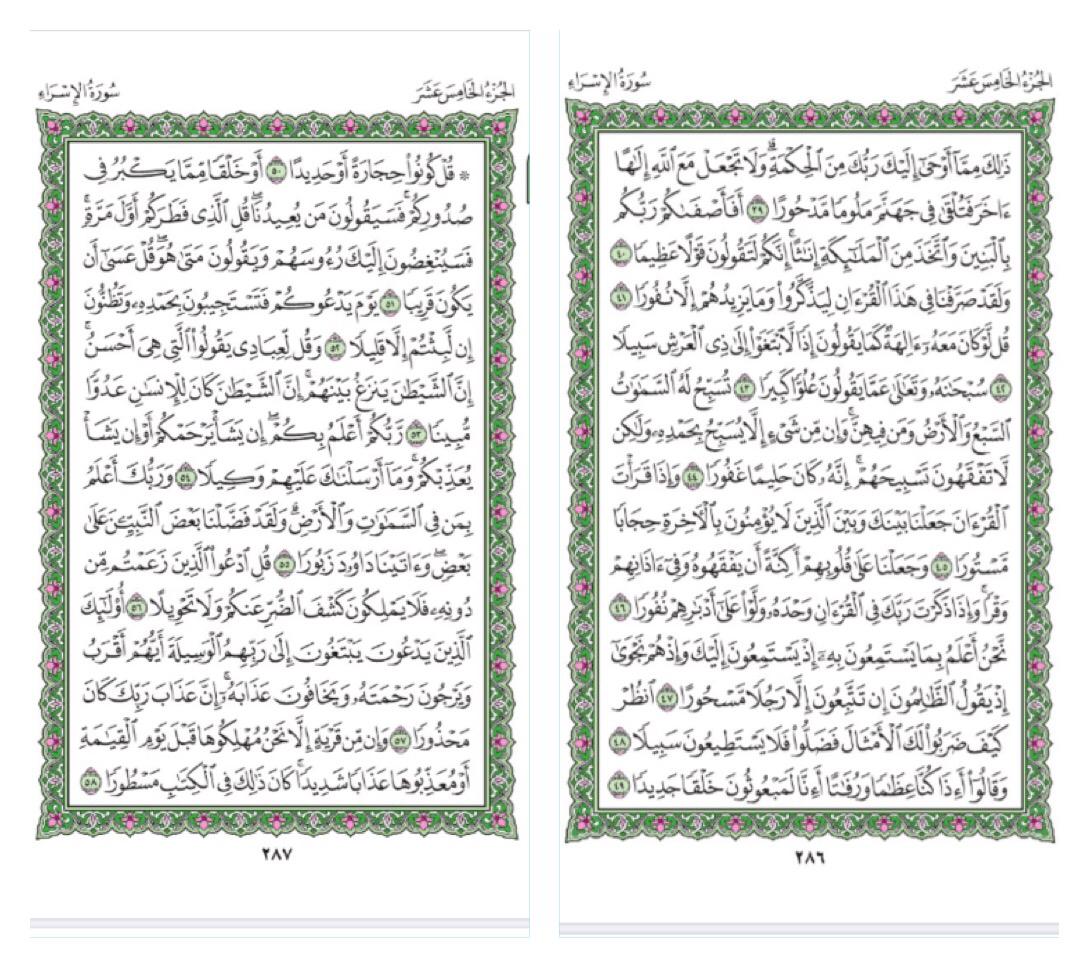 الجُزْءُ الخَامِسَ عَشَرَ
سُورَةُ الإِسْرَاءِ
ذَٰلِكَ مِمَّآ أَوْحَىٰٓ إِلَيْكَ رَبُّكَ مِنَ ٱلْحِكْمَةِۗ وَلَا تَجْعَلْ مَعَ ٱللَّهِ إِلَٰهًا
ءَاخَرَ فَتُلْقَىٰ فِى جَهَنَّمَ مَلُومًا مَّدْحُورًا ٣٩ أَفَأَصْفَىٰكُمْ رَبُّكُم
بِٱلْبَنِينَ وَٱتَّخَذَ مِنَ ٱلْمَلَٰٓئِكَةِ إِنَٰثًاۚ إِنَّكُمْ لَتَقُولُونَ قَوْلًا عَظِيمًا ٤٠
وَلَقَدْ صَرَّفْنَا فِى هَٰذَا ٱلْقُرْءَانِ لِيَذَّكَّرُوا۟ وَمَا يَزِيدُهُمْ إِلَّا نُفُورًا ٤١
قُل لَّوْ كَانَ مَعَهُۥٓ ءَالِهَةٌ كَمَا يَقُولُونَ إِذًا لَّٱبْتَغَوْا۟ إِلَىٰ ذِى ٱلْعَرْشِ سَبِيلًا
٤٢ سُبْحَٰنَهُۥ وَتَعَٰلَىٰ عَمَّا يَقُولُونَ عُلُوًّا كَبِيرًا ٤٣ تُسَبِّحُ لَهُ ٱلسَّمَٰوَٰتُ
ٱلسَّبْعُ وَٱلْأَرْضُ وَمَن فِيهِنَّۚ وَإِن مِّن شَىْءٍ إِلَّا يُسَبِّحُ بِحَمْدِهِۦ وَلَٰكِن
لَّا تَفْقَهُونَ تَسْبِيحَهُمْۗ إِنَّهُۥ كَانَ حَلِيمًا غَفُورًا ٤٤ وَإِذَا قَرَأْتَ
ٱلْقُرْءَانَ جَعَلْنَا بَيْنَكَ وَبَيْنَ ٱلَّذِينَ لَا يُؤْمِنُونَ بِٱلْءَاخِرَةِ حِجَابًا
مَّسْتُورًا ٤٥ وَجَعَلْنَا عَلَىٰ قُلُوبِهِمْ أَكِنَّةً أَن يَفْقَهُوهُ وَفِىٓ ءَاذَانِهِمْ
وَقْرًاۚ وَإِذَا ذَكَرْتَ رَبَّكَ فِى ٱلْقُرْءَانِ وَحْدَهُۥ وَلَّوْا۟ عَلَىٰٓ أَدْبَٰرِهِمْ نُفُورًا ٤٦
نَّحْنُ أَعْلَمُ بِمَا يَسْتَمِعُونَ بِهِۦٓ إِذْ يَسْتَمِعُونَ إِلَيْكَ وَإِذْ هُمْ نَجْوَىٰٓ
إِذْ يَقُولُ ٱلظَّٰلِمُونَ إِن تَتَّبِعُونَ إِلَّا رَجُلًا مَّسْحُورًا ٤٧ ٱنظُرْ
كَيْفَ ضَرَبُوا۟ لَكَ ٱلْأَمْثَالَ فَضَلُّوا۟ فَلَا يَسْتَطِيعُونَ سَبِيلًا ٤٨
وَقَالُوٓا۟ أَءِذَا كُنَّا عِظَٰمًا وَرُفَٰتًا أَءِنَّا لَمَبْعُوثُونَ خَلْقًا جَدِيدًا ٤٩
٢٨٦
الجُزْءُ الخَامِسَ عَشَرَ
سُورَةُ الإِسْرَاءِ
* قُلْ كُونُوا۟ حِجَارَةً أَوْ حَدِيدًا ٥٠ أَوْ خَلْقًا مِّمَّا يَكْبُرُ فِى
صُدُورِكُمْۚ فَسَيَقُولُونَ مَن يُعِيدُنَاۖ قُلِ ٱلَّذِى فَطَرَكُمْ أَوَّلَ مَرَّةٍۚ
فَسَيُنْغِضُونَ إِلَيْكَ رُءُوسَهُمْ وَيَقُولُونَ مَتَىٰ هُوَۖ قُلْ عَسَىٰٓ أَن
يَكُونَ قَرِيبًا ٥١ يَوْمَ يَدْعُوكُمْ فَتَسْتَجِيبُونَ بِحَمْدِهِۦ وَتَظُنُّونَ
إِن لَّبِثْتُمْ إِلَّا قَلِيلًا ٥٢ وَقُل لِّعِبَادِى يَقُولُوا۟ ٱلَّتِى هِىَ أَحْسَنُۚ
إِنَّ ٱلشَّيْطَٰنَ يَنزَغُ بَيْنَهُمْۚ إِنَّ ٱلشَّيْطَٰنَ كَانَ لِلْإِنسَٰنِ عَدُوًّا
مُّبِينًا ٥٣ رَّبُّكُمْ أَعْلَمُ بِكُمْۖ إِن يَشَأْ يَرْحَمْكُمْ أَوْ إِن يَشَأْ
يُعَذِّبْكُمْۚ وَمَآ أَرْسَلْنَٰكَ عَلَيْهِمْ وَكِيلًا ٥٤ وَرَبُّكَ أَعْلَمُ
بِمَن فِى ٱلسَّمَٰوَٰتِ وَٱلْأَرْضِۗ وَلَقَدْ فَضَّلْنَا بَعْضَ ٱلنَّبِيِّۦنَ عَلَىٰ
بَعْضٍۖ وَءَاتَيْنَا دَاوُۥدَ زَبُورًا ٥٥ قُلِ ٱدْعُوا۟ ٱلَّذِينَ زَعَمْتُم مِّن
دُونِهِۦ فَلَا يَمْلِكُونَ كَشْفَ ٱلضُّرِّ عَنكُمْ وَلَا تَحْوِيلًا ٥٦ أُو۟لَٰٓئِكَ
ٱلَّذِينَ يَدْعُونَ يَبْتَغُونَ إِلَىٰ رَبِّهِمُ ٱلْوَسِيلَةَ أَيُّهُمْ أَقْرَبُ
وَيَرْجُونَ رَحْمَتَهُۥ وَيَخَافُونَ عَذَابَهُۥٓۚ إِنَّ عَذَابَ رَبِّكَ كَانَ
مَحْذُورًا ٥٧ وَإِن مِّن قَرْيَةٍ إِلَّا نَحْنُ مُهْلِكُوهَا قَبْلَ يَوْمِ ٱلْقِيَٰمَةِ
أَوْ مُعَذِّبُوهَا عَذَابًا شَدِيدًاۚ كَانَ ذَٰلِكَ فِى ٱلْكِتَٰبِ مَسْطُورًا ٥٨
٢٨٧